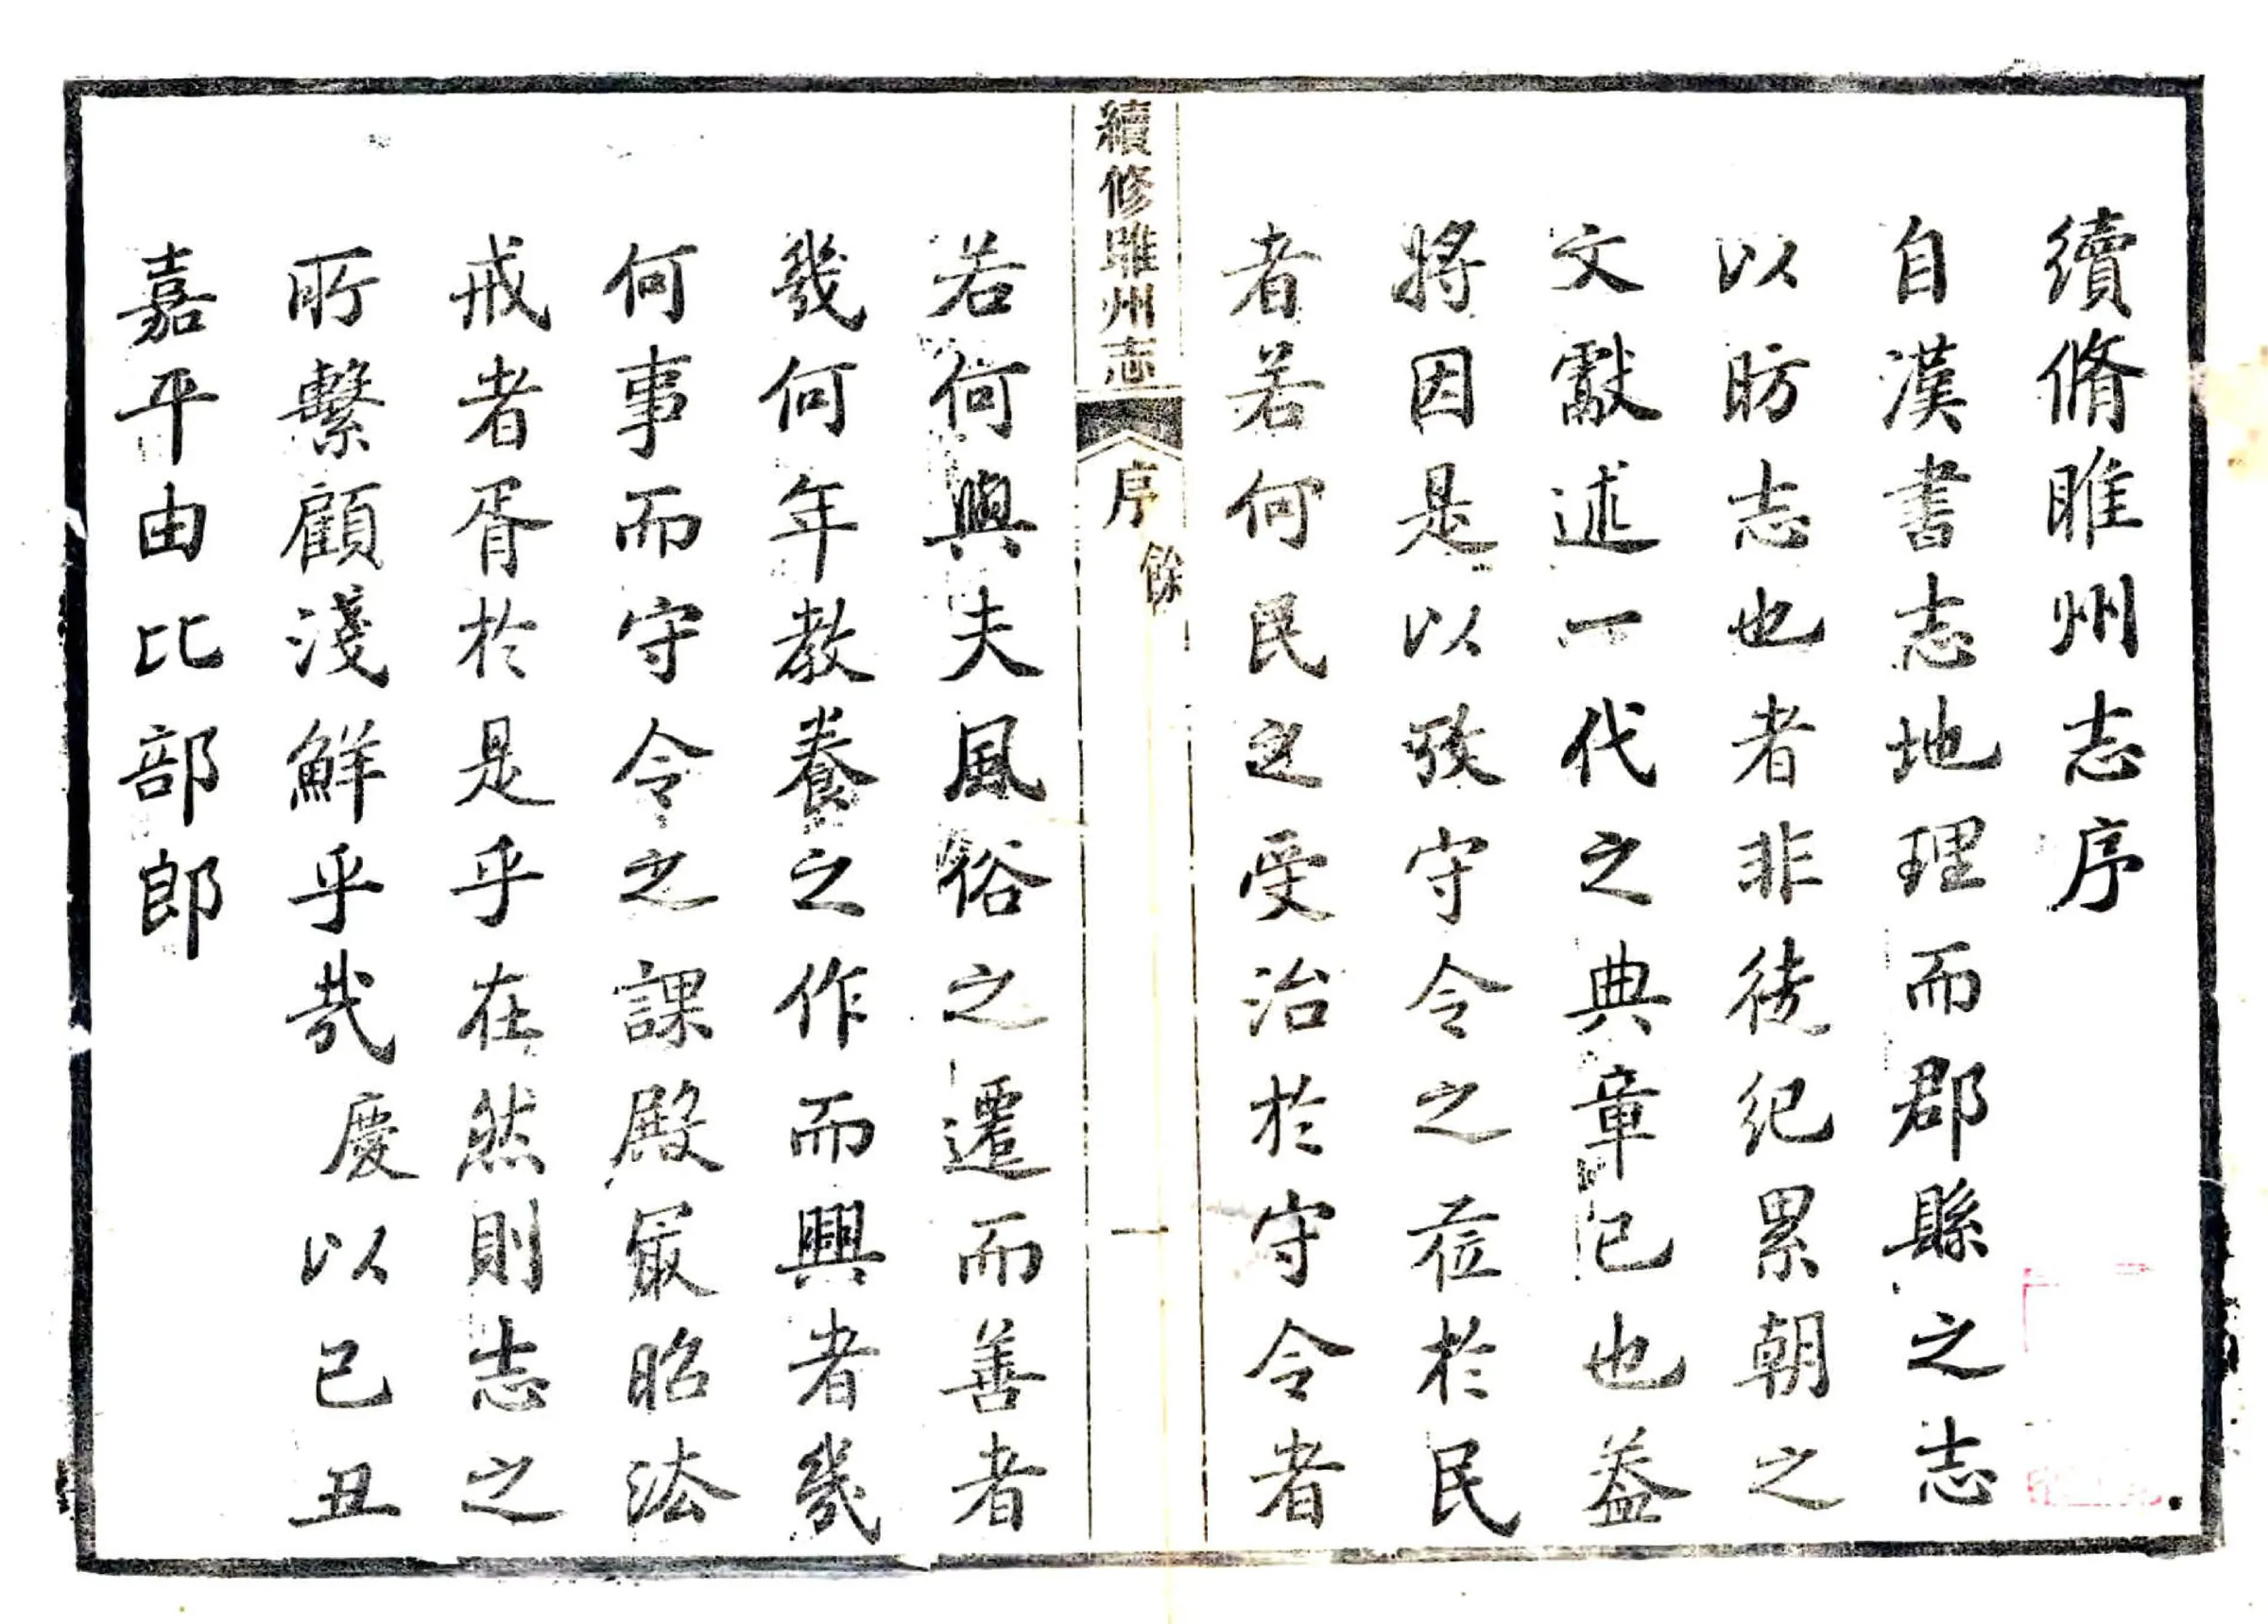 續脩睢州志序
自漢書志地理而郡縣之志
以昉志也者非徒紀累朝之
文獻述一代之典章已也葢
將因是以攷守令之蒞於民
者若何民之受治於守令者
續修睢州志
序
餘
一
若何與夫風俗之遷而善者
幾何年教養之作而興者幾
何事而守令之課殿冣昭法
戒者胥於是乎在然則志之
所繫顧淺鮮乎哉慶以己丑
嘉平由比部郎